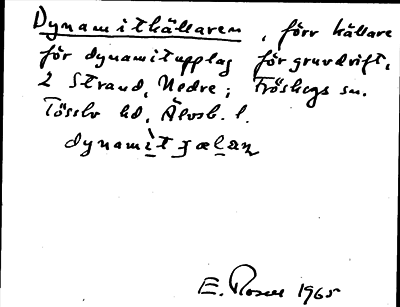 Dynamitkällaren, förr källare
för dynamitupplag för gruvdrift.
2 Strand, Nedre; Fröskogs sn.
Tössbo hd, Älvsb. l.
dynamìt ɟælaɳ
E. Rosell 1965